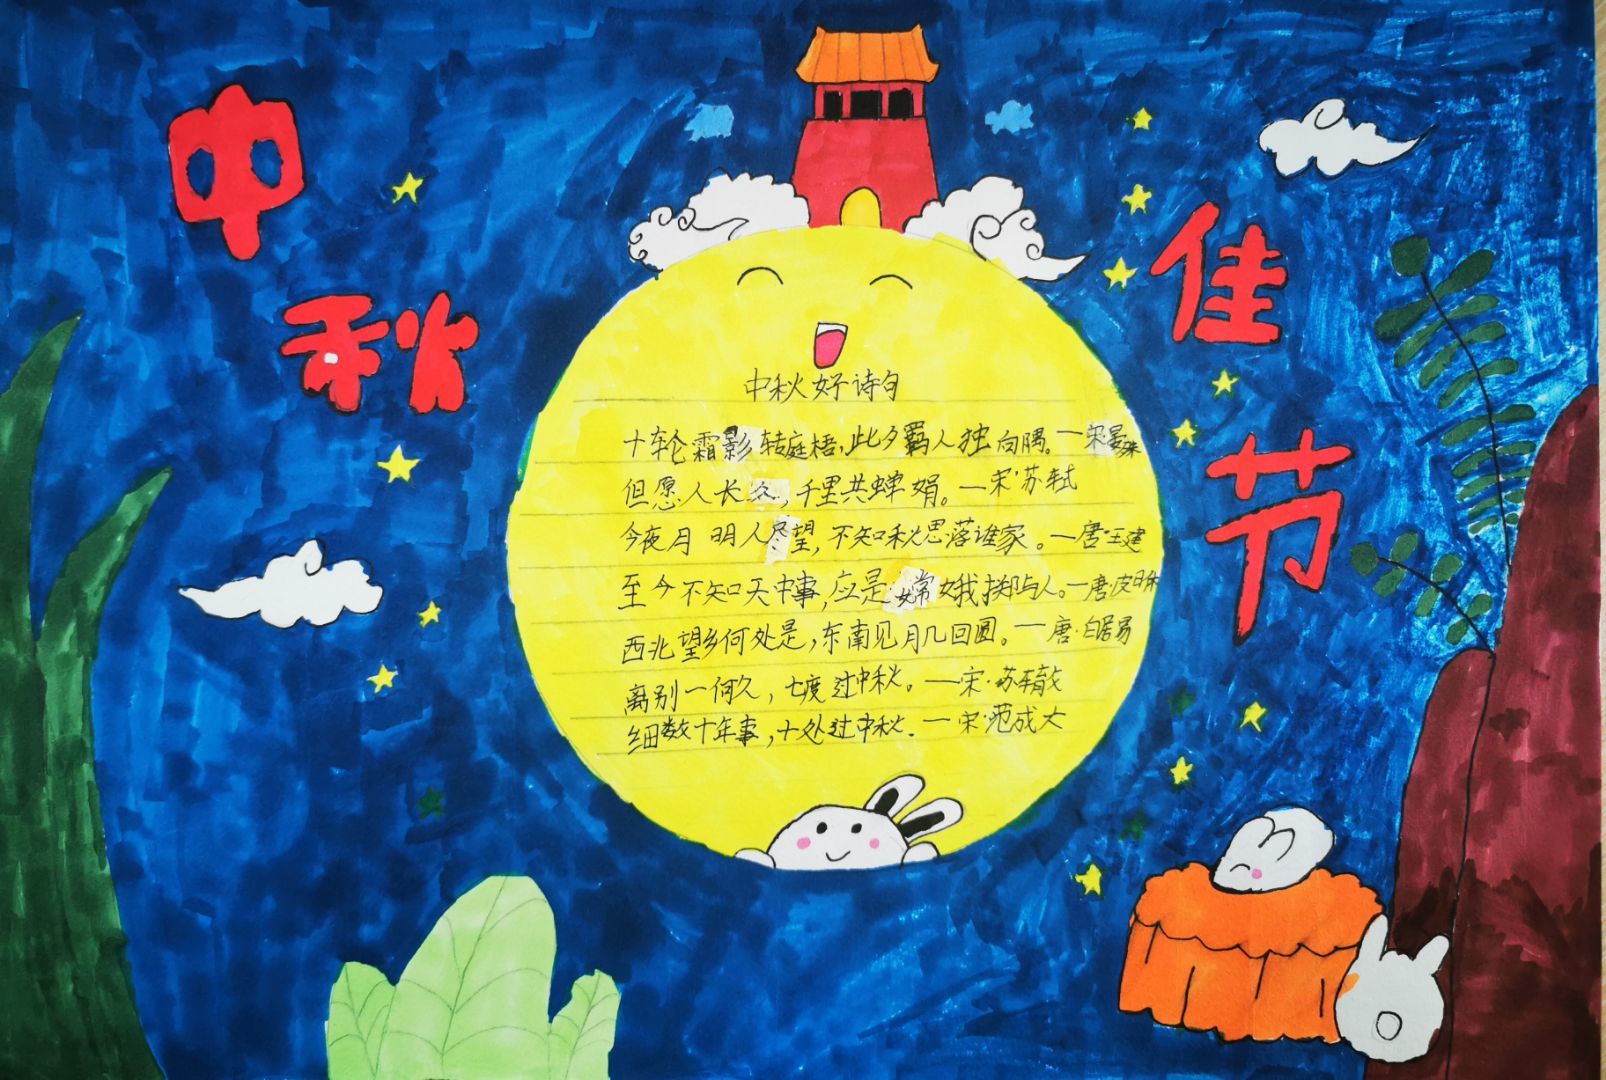 中秋
佳节
中秋好诗句
十轮霜影转庭梧，此夕羁人独向隅。一宋晏殊
但愿人长久，千里共蝉娟。一宋·苏轼
今夜月明人尽望，不知秋思落谁家。一唐·王建
至今不知天中事，应是嫦娥掷与人。一唐·皮日休
西北望乡何处是，东南见月几回圆。一唐·白居易
离别一何久，七度过中秋。一宋·苏辙
细数十年事，十处过中秋．一宋·范成大